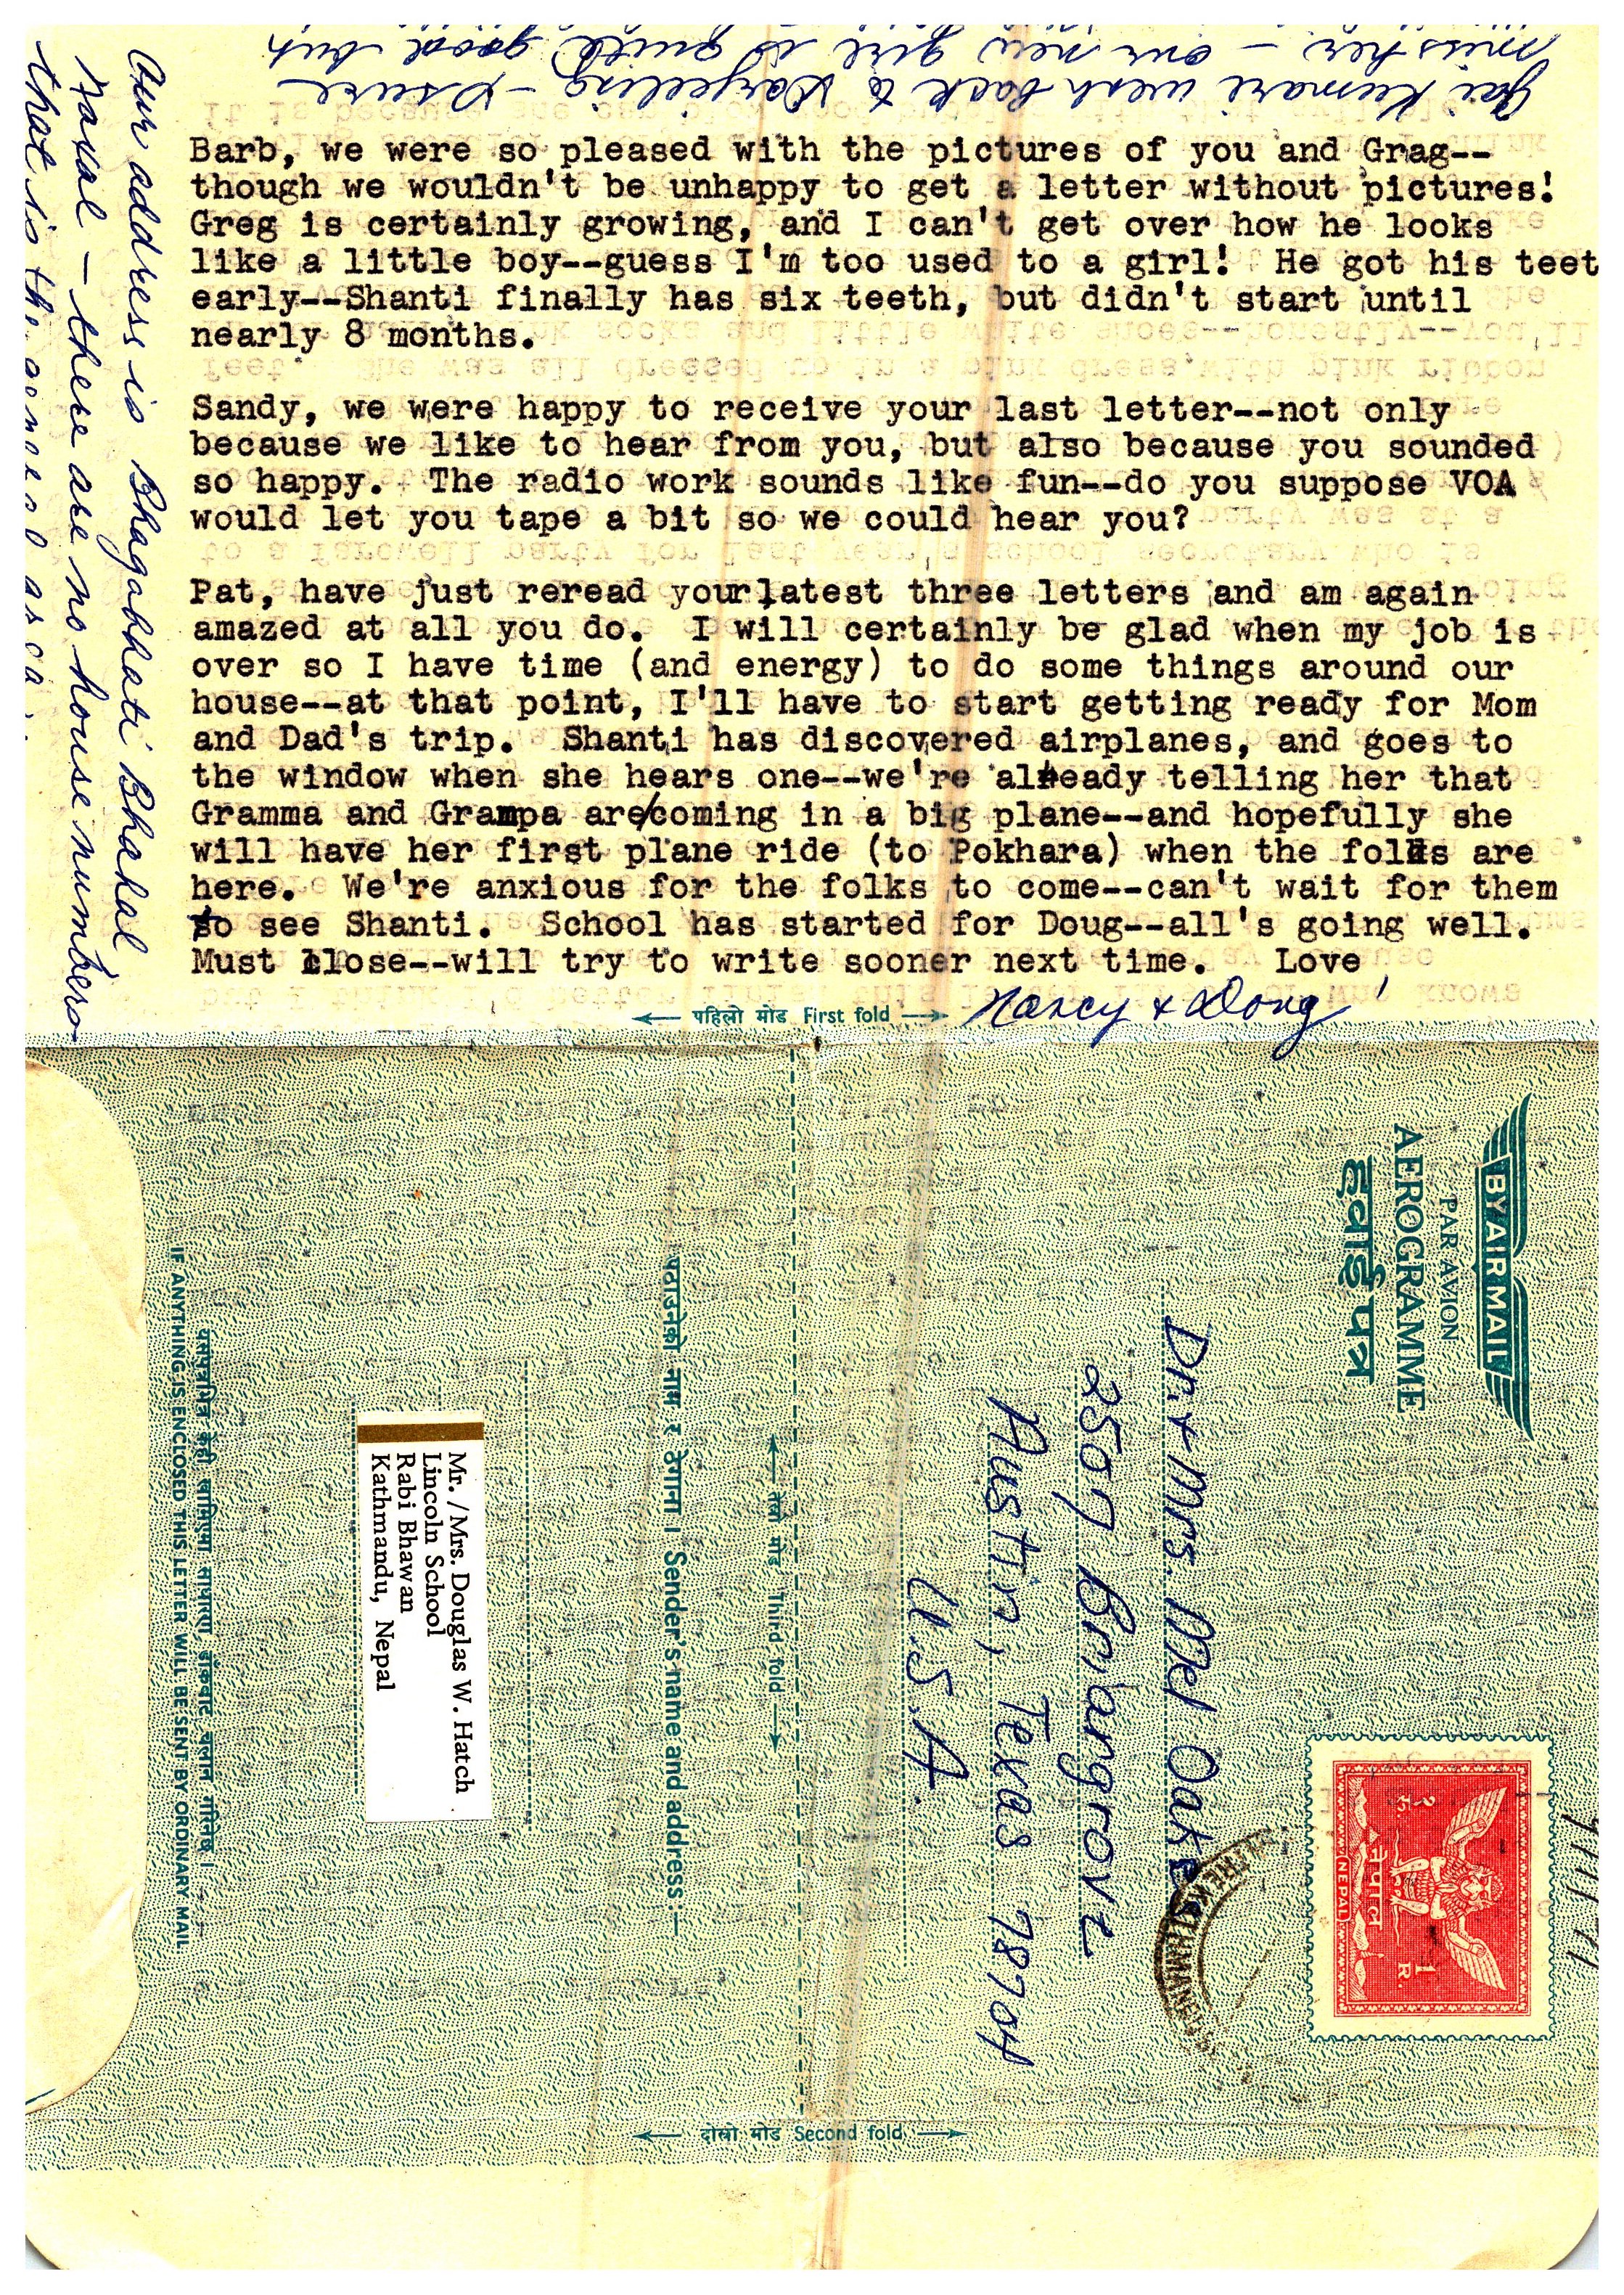 Jai Kumari went back to Darjeeling - I sure
miss her - our new girl is quite good but
Barb, we were so pleased with the pictures of you and Grag--
though we wouldn't be unhappy to get a letter without pictures!
Greg is certainly growing, and I can't get over how he looks
like a little boy--guess I'm too used to a girl! He got his teet
early--Shanti finally has six teeth, but didn't start until
nearly 8 months.
Sandy, we were happy to receive your last letter--not only
because we like to hear from you, but also because you sounded
so happy. The radio work sounds like fun--do you suppose VOA
would let you tape a bit so we could hear you?
Pat, have just reread your latest three letters and am again
amazed at all you do. I will certainly be glad when my job is
over so I have time (and energy) to do some things around our
house--at that point, I'll have to start getting ready for Mom
and Dad's trip. Shanti has discovered airplanes, and goes to
the window when she hears one--we're already telling her that
Gramma and Grampa are/coming in a big plane--and hopefully she
will have her first plane ride (to Pokhara) when the folks are
here. We're anxious for the folks to come--can't wait for them
to see Shanti. School has started for Doug--all's going well.
Must close--will try to write sooner next time. Love
Nancy & Doug
Our address is Bhagabhati Bhahal
Naxal - there are no house numbers
that is the
← पहिलो मोड First fold →
BY AIR MAIL
PAR AVION
AEROGRAMME
हवाई पत्र
नेपाल
NEPAL
1 R.
Dr. & Mrs. Mel Oakes
2507 Briangrove
Austin, Texas 78704
U.S.A.
← तेस्रो मोड Third fold →
पठाउनेको नाम र ठेगाना । Sender's name and address:—
Mr. /Mrs. Douglas W. Hatch
Lincoln School
Rabi Bhawan
Kathmandu, Nepal
IF ANYTHING IS ENCLOSED THIS LETTER WILL BE SENT BY ORDINARY MAIL
← दोस्रो मोड Second fold →